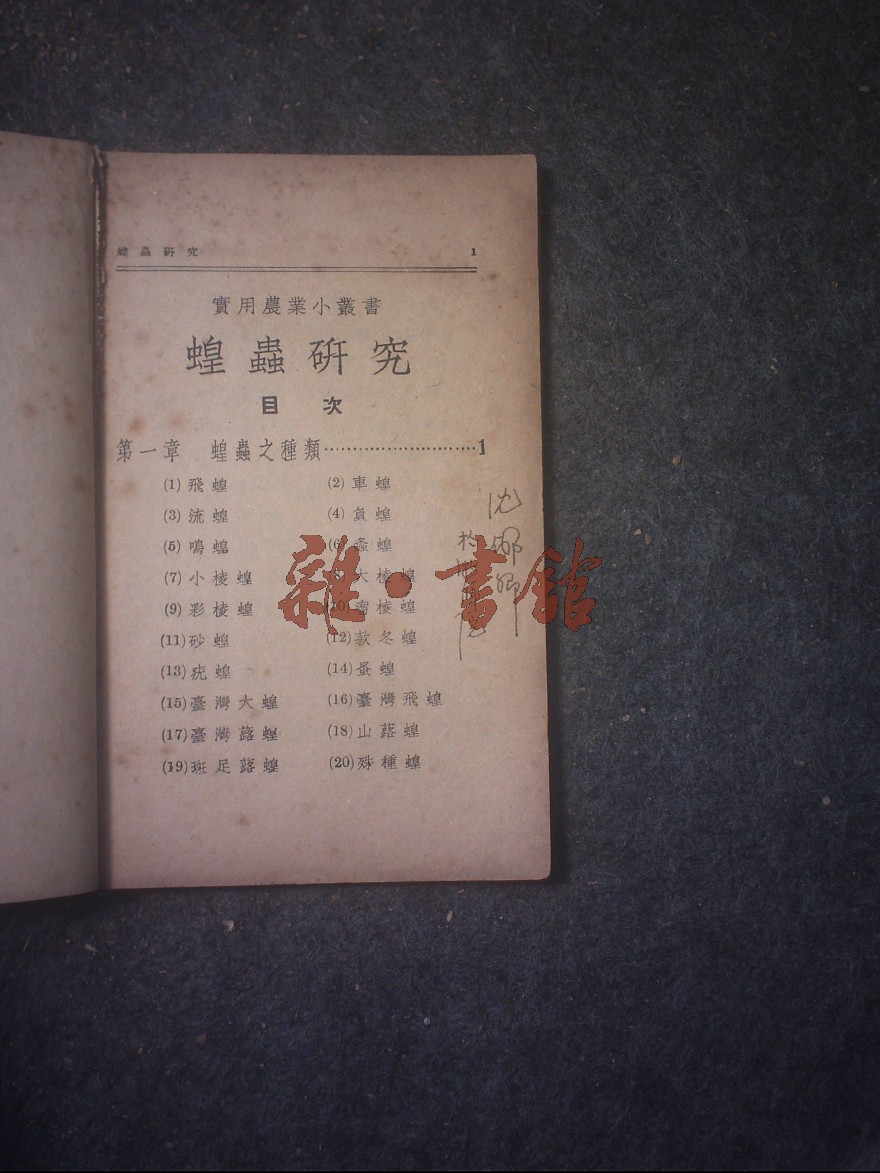 蝗蟲研究 1
實用農業小叢書
蝗蟲硏究
目次
第一章 蝗蟲之種類………………………1
(1)飛蝗 (2)車蝗
(3)流蝗 (4)負蝗
(5)鳴蝗 (6)螽蝗
(7)小棱蝗 (8)大棱蝗
(9)彩棱蝗 (10)瘤棱蝗
(11)砂蝗 (12)款冬蝗
(13)疣蝗 (14)蛋蝗
(15)臺灣大蝗 (16)臺灣飛蝗
(17)臺灣蕗蝗 (18)山蕗蝗
(19)斑足蕗蝗 (20)殊種蝗
雜·書館